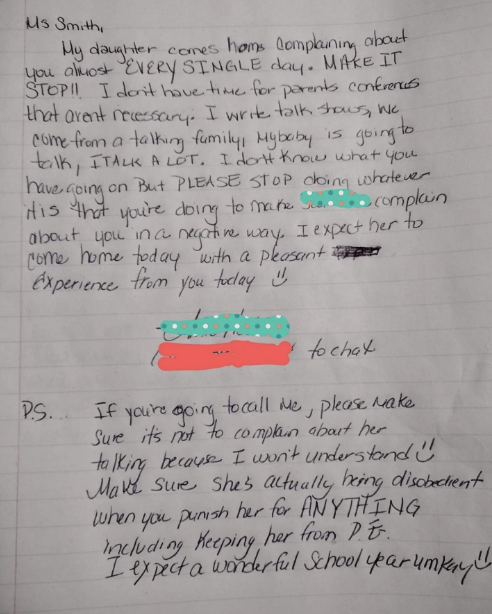 Ms Smith,
My daughter comes home complaining about
you almost EVERY SINGLE day. MAKE IT
STOP!! I don't have time for parents conferences
that arent necessary. I write talk shows, we
come from a talking family, My baby is going to
talk, I TALK A LOT. I don't know what you
have going on But PLEASE STOP doing whatever
it is that you're doing to make complain
about you in a negative way. I expect her to
come home today with a pleasant
experience from you today
to chat
P.S. If you're going to call me, please make
sure it's not to complain about her
talking because I won't understand
Make sure she's actually being disobedient
when you punish her for ANYTHING
including keeping her from P.E.
I expect a wonderful School year umkay